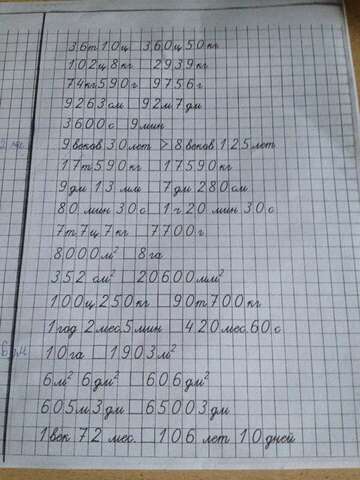 36т10ц □ 360ц50кг
102ц8кг □ 2939кг
74кг590г □ 9756г
9263см □ 92м7дм
3600с □ 9мин
9веков30лет > 8веков125лет
17т590кг □ 17590кг
9дм 13 мм □ 7дм 280см
80 мин 30с □ 1ч20 мин 30с
7т7ц7кг □ 7700г
8000м² □ 8га
352 см² □ 20600мм²
100ц250кг □ 90т700кг
1год 2мес.5мин □ 420мес.60с
10га □ 1903м²
6м² 6дм² □ 606дм²
605м3дм □ 65003дм
1век 72 мес. □ 106 лет 10дней